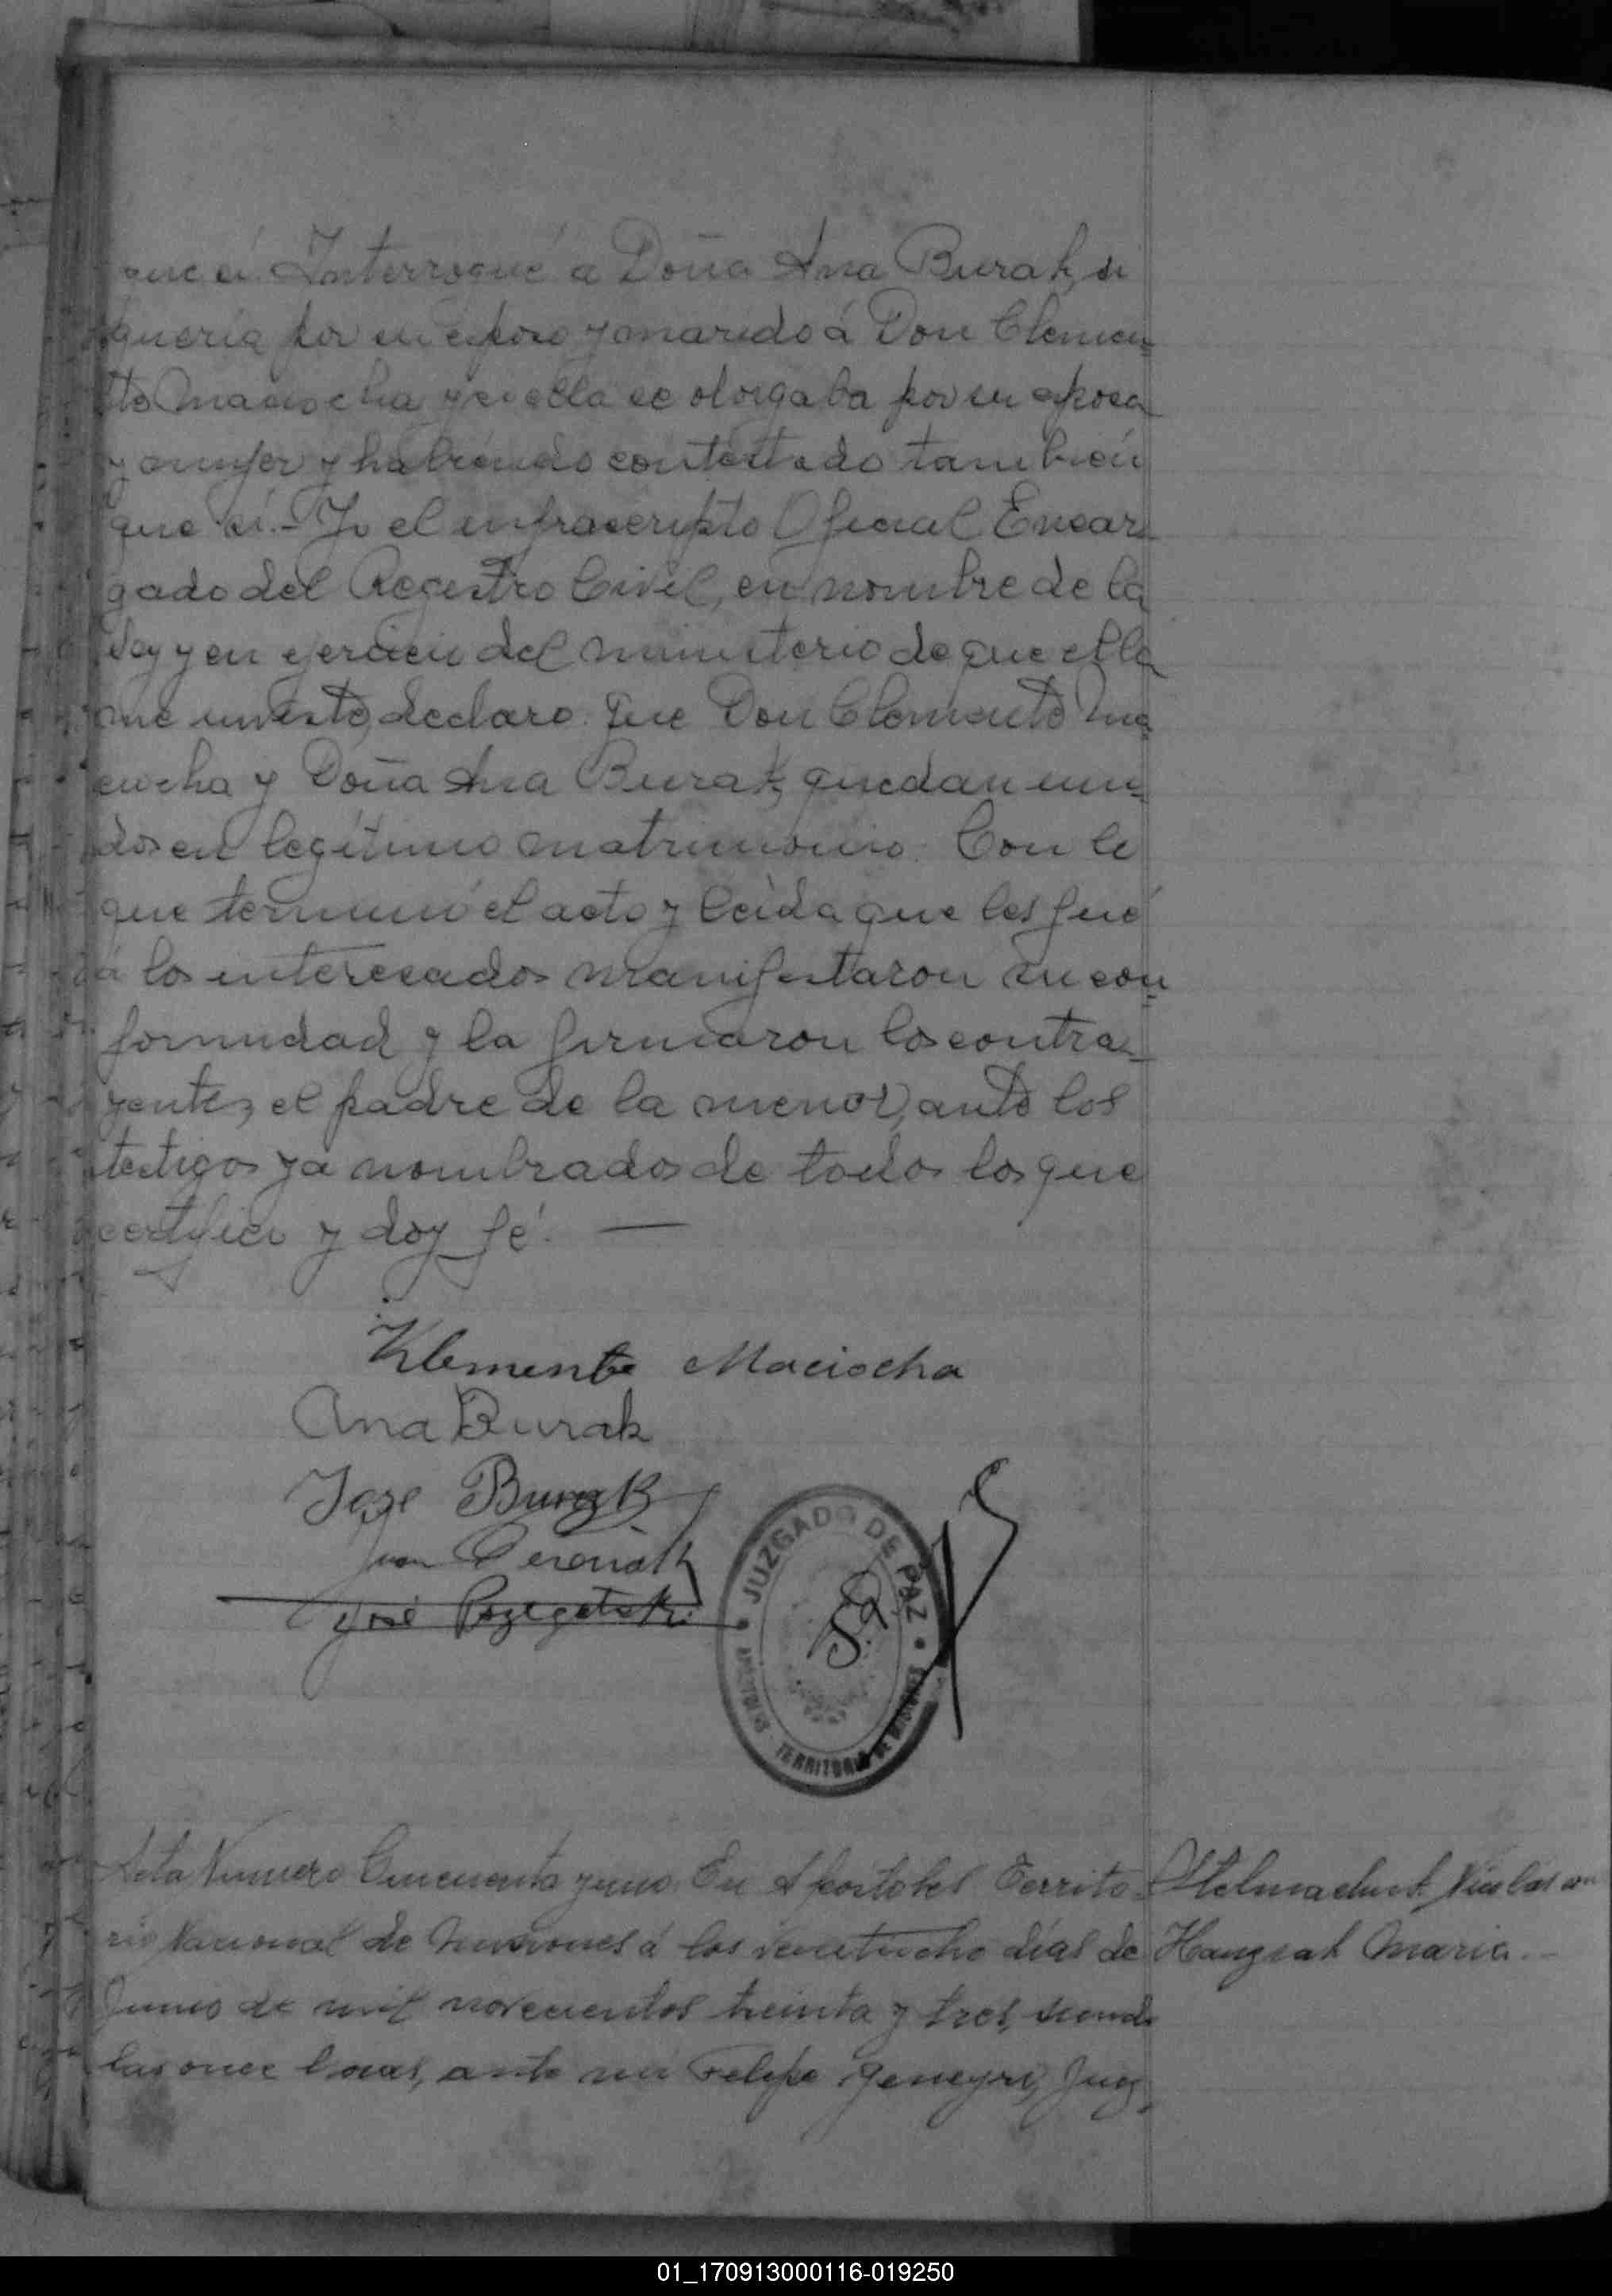 que sí. Interrogué a Doña Ana Burak, si
quería por su esposo y marido á Don Clemen=
te Maciocha y si ella se otorgaba por su esposa
y mujer y habiendo contestado también
que sí.- Yo el infrascripto Oficial Encar=
gado del Registro Civil, en nombre de la
Ley y en ejercicio del ministerio de que ella
me inviste, declaro: que Don Clemente Ma=
ciocha y Doña Ana Burak, quedan uni=
dos en legítimo matrimonio. Con lo
que terminó el acto y leída que les fué
á los interesados manifestaron su con=
formidad y la firmaron los contra=
yentes, el padre de la menor, ante los
testigos ya nombrados de todos los que
certifico y doy fé. —
Klemente Maciocha
Ana Burak
Joze Burak
Juan
José
JUZGADO DE PAZ
APOSTOLES - TERRITORIO DE MISIONES
Acta Numero Cincuenta y uno. En Apostoles Territo=
rio Nacional de Misiones á los veintiocho días de
Junio de mil novecientos treinta y tres, siendo
las once horas, ante mi Felipe Juez
Stelmachuk Nicolas con
Maria.-
01_170913000116-019250